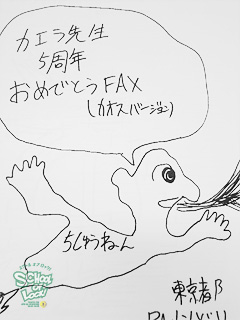 カエラ先生
5周年
おめでとうFAX
(カオスバージョン)
5しゅうねん
SCHOOL
OF
LOCK!
東京都